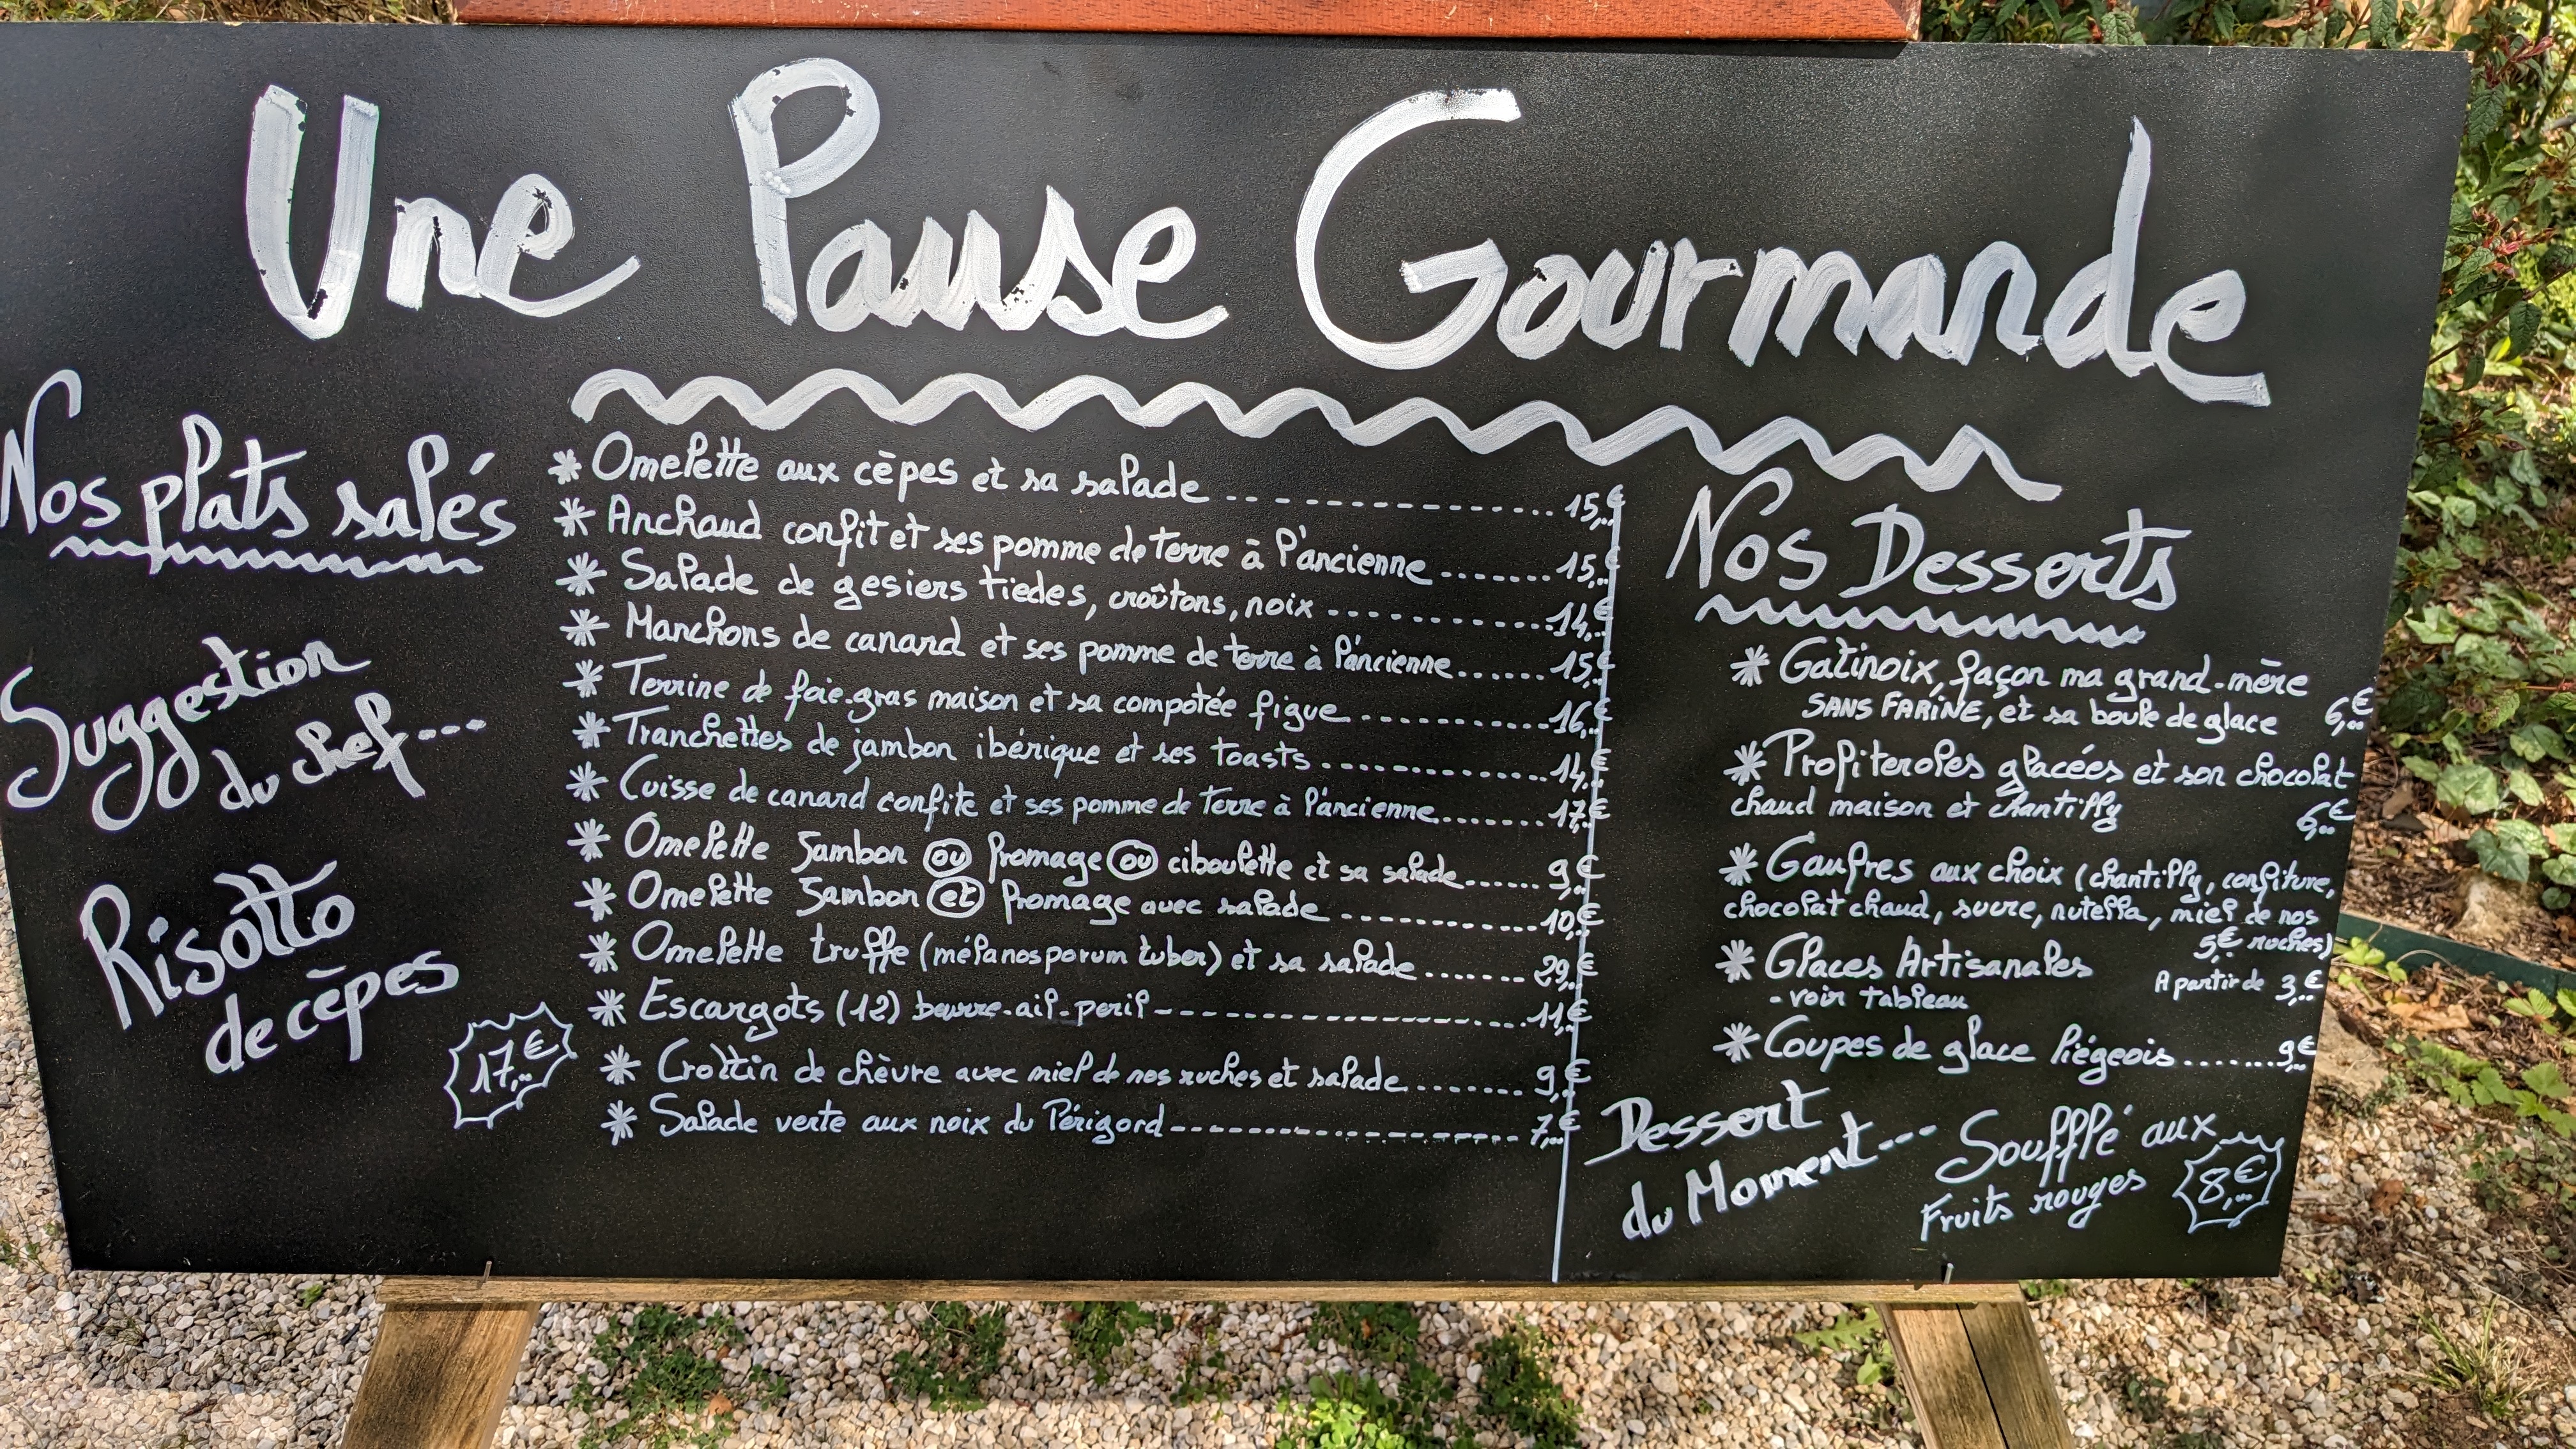 Une Pause Gourmande
Nos plats salés
Suggestion
du chef---
Risotto
de cèpes
17,..€
* Omelette aux cèpes et sa salade .............. 15,..€
* Anchaud confit et ses pomme de terre à l'ancienne ....... 15,..€
* Salade de gesiers tiedes, croûtons, noix ........... 14,..€
* Manchons de canard et ses pomme de terre à l'ancienne ...... 15,..€
* Terrine de foie-gras maison et sa compotée figue ............ 16,..€
* Tranchettes de jambon ibérique et ses toasts ............... 14,..€
* Cuisse de canard confite et ses pomme de terre à l'ancienne ........ 17,..€
* Omelette Jambon ou fromage ou ciboulette et sa salade ...... 9,..€
* Omelette Jambon et fromage avec salade ............ 10,..€
* Omelette truffe (mélanosporum tuber) et sa salade ....... 29,..€
* Escargots (12) beurre-ail-persil ------------------- 11,..€
* Crottin de chèvre avec miel de nos ruches et salade ........ 9,..€
* Salade verte aux noix du Périgord ------------------- 7,..€
Nos Desserts
* Gatinoix, façon ma grand-mère
SANS FARINE, et sa boule de glace 6,..€
* Profiteroles glacées et son chocolat
chaud maison et chantilly 6,..€
* Gaufres aux choix (chantilly, confiture,
chocolat chaud, sucre, nutella, miel de nos
5,..€ ruches)
* Glaces Artisanales A partir de 3,..€
- voir tableau
* Coupes de glace liégeois ....... 9,..€
Dessert
du Moment---
Soufflé aux
Fruits rouges
8,..€